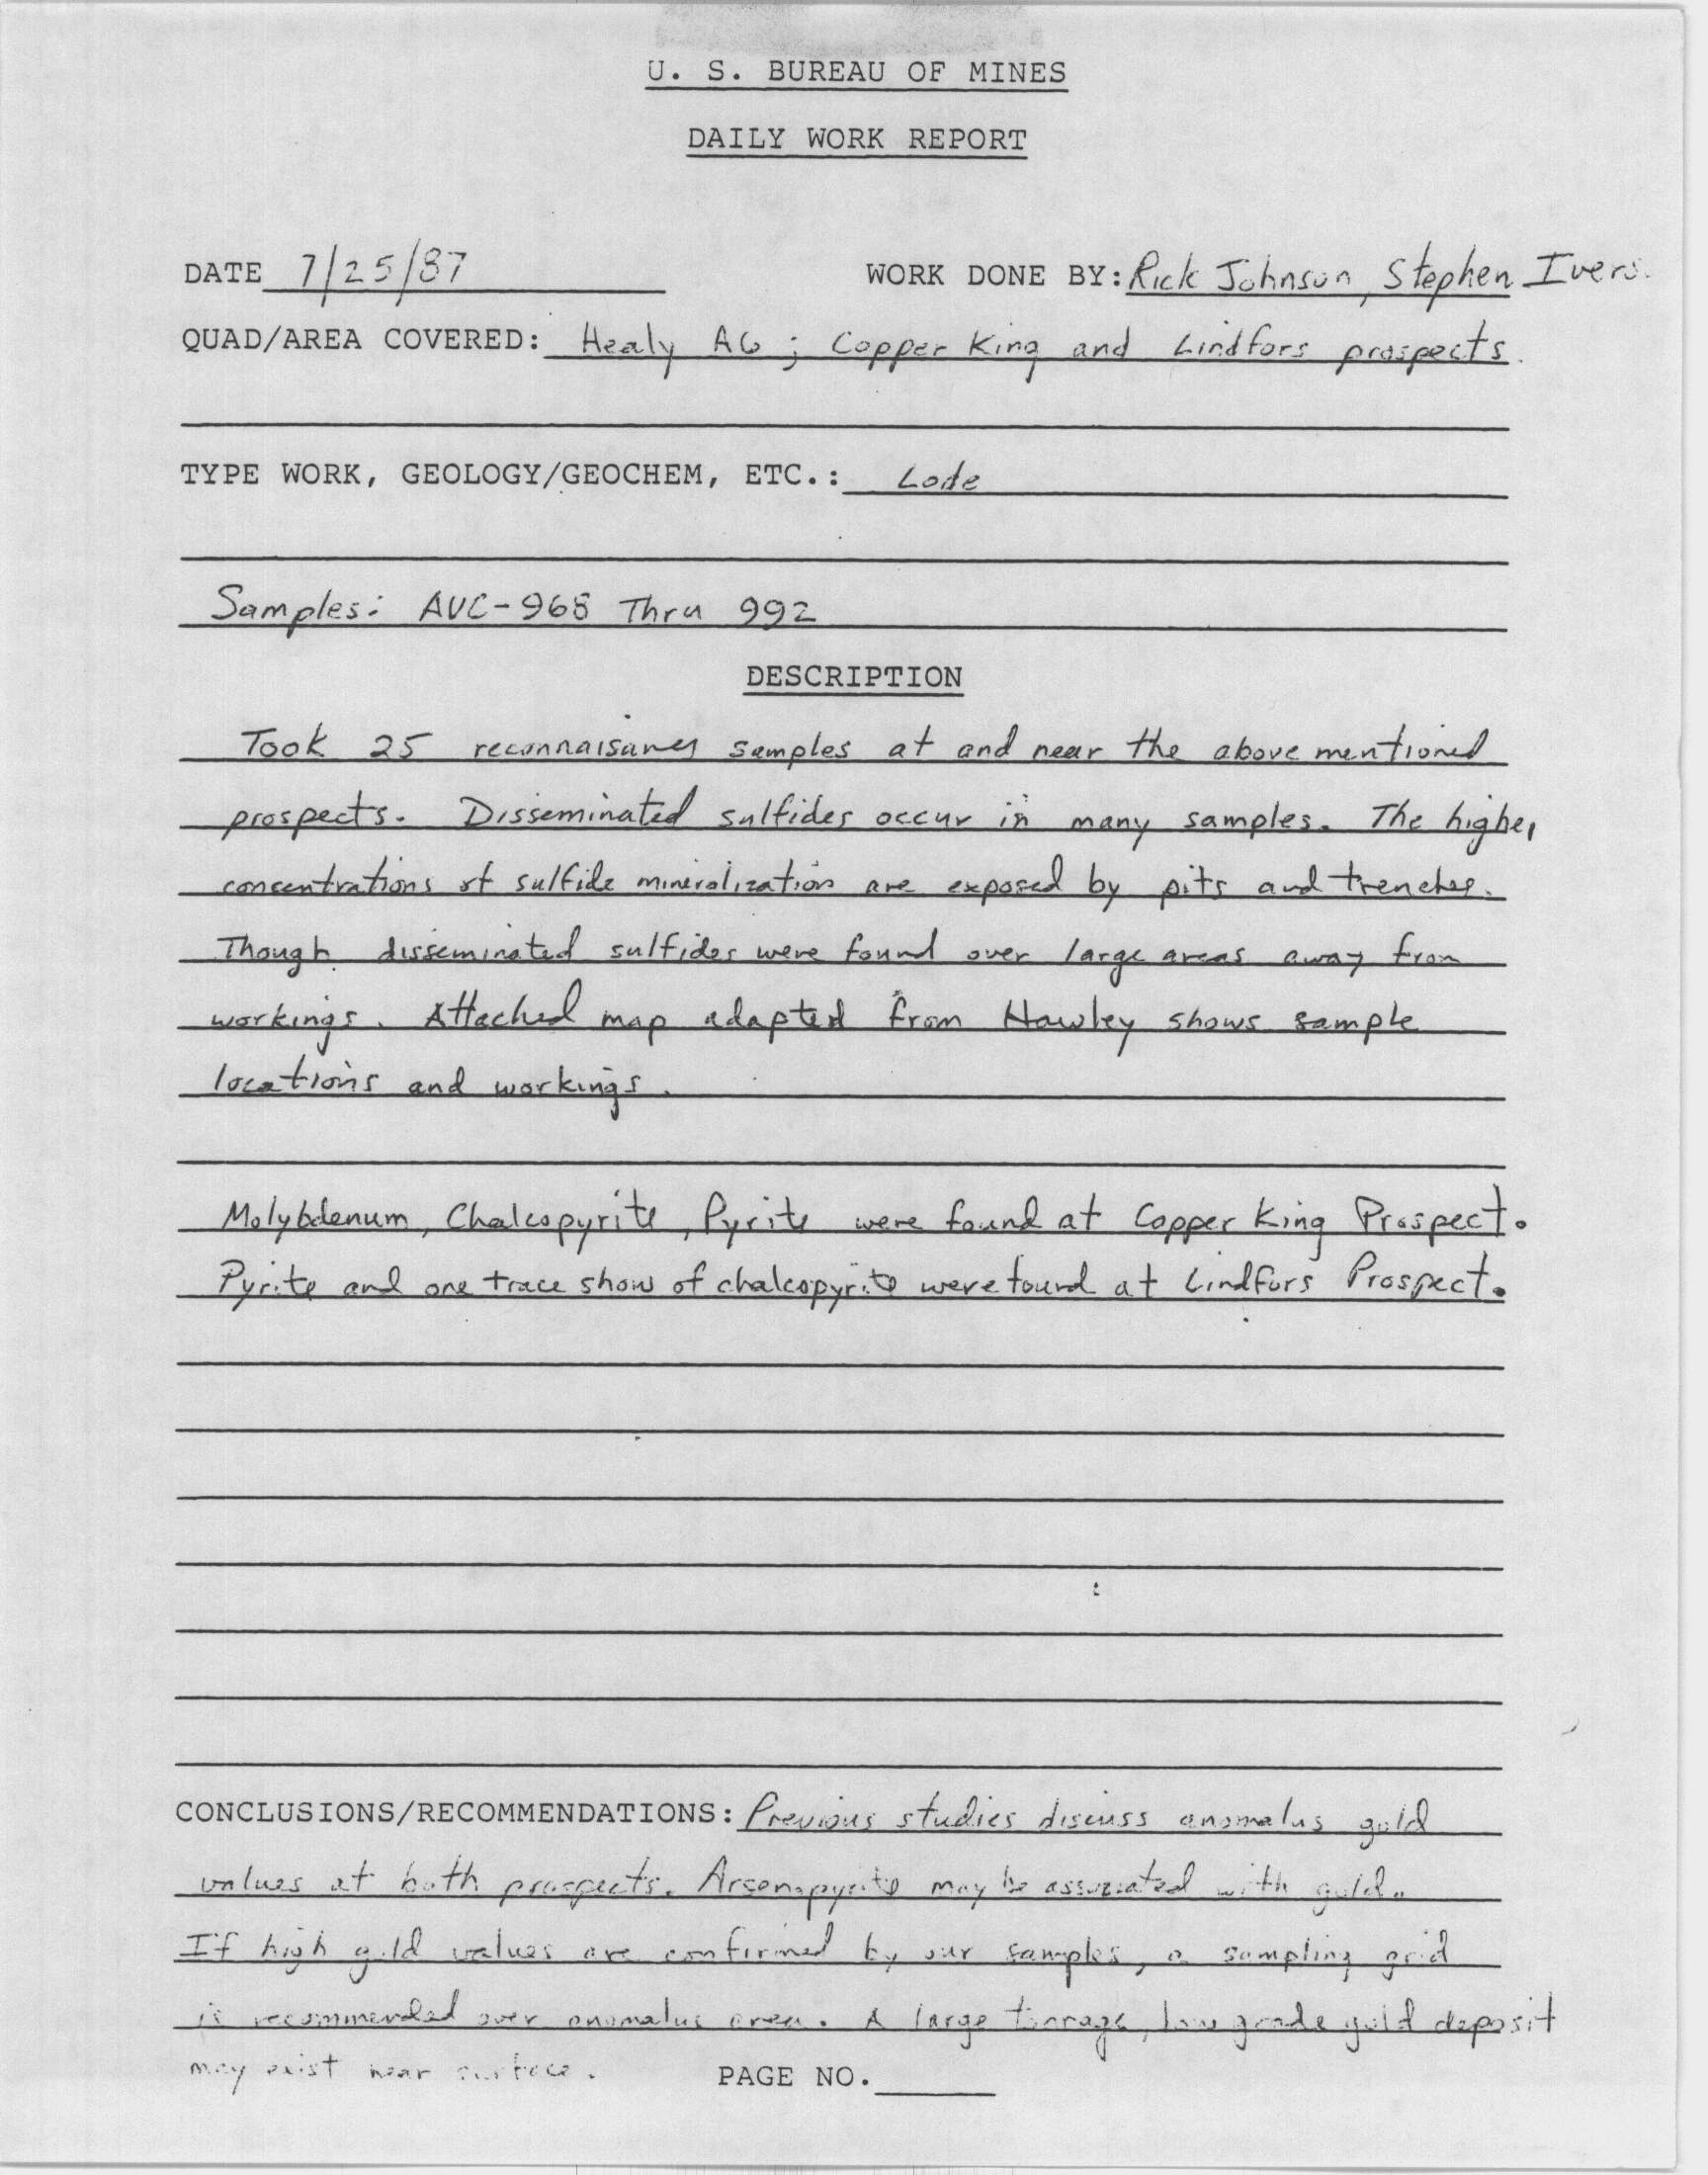 U. S. BUREAU OF MINES
DAILY WORK REPORT
DATE 7/25/87 WORK DONE BY: Rick Johnson, Stephen Ivers.
QUAD/AREA COVERED: Healy A6 ; Copper King and Lindfors prospects.
TYPE WORK, GEOLOGY/GEOCHEM, ETC.: Lode
Samples: AVC-968 Thru 992
DESCRIPTION
Took 25 samples at and near the above mentioned
prospects. Disseminated sulfides occur in many samples. The higher
concentrations of sulfide mineralization are exposed by pits and trenches.
Though disseminated sulfides were found over large areas away from
workings. Attached map adapted from Hawley shows sample
locations and workings.
Molybdenum, Chalcopyrite, Pyrite were found at Copper King Prospect.
Pyrite and one trace show of chalcopyrite were found at Lindfors Prospect.
CONCLUSIONS/RECOMMENDATIONS: Previous studies discuss anomalus gold
values at both prospects. Arsenopyrite may be associated with gold.
If high gold values are confirmed by our samples, a sampling grid
is recommended over anomalus area. A large tonnage, low grade gold deposit
may exist near surface. PAGE NO.